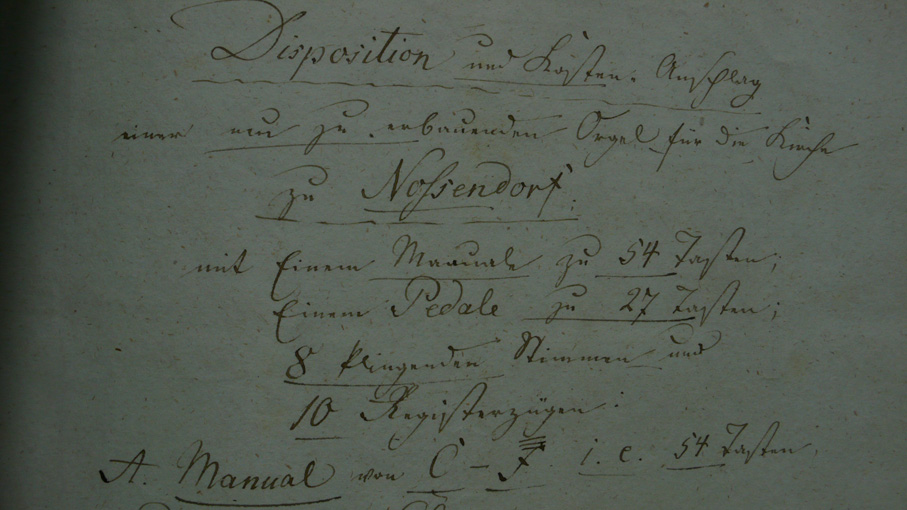 Disposition und Kosten-Anschlag
einer neu zu erbauenden Orgel für die Kirche
zu Nossendorf,
mit Einem Manuale zu 54 Tasten;
Einem Pedale zu 27 Tasten;
8 klingenden Stimmen und
10 Registerzügen.
A. Manual von C – F̿ i. e. 54 Tasten